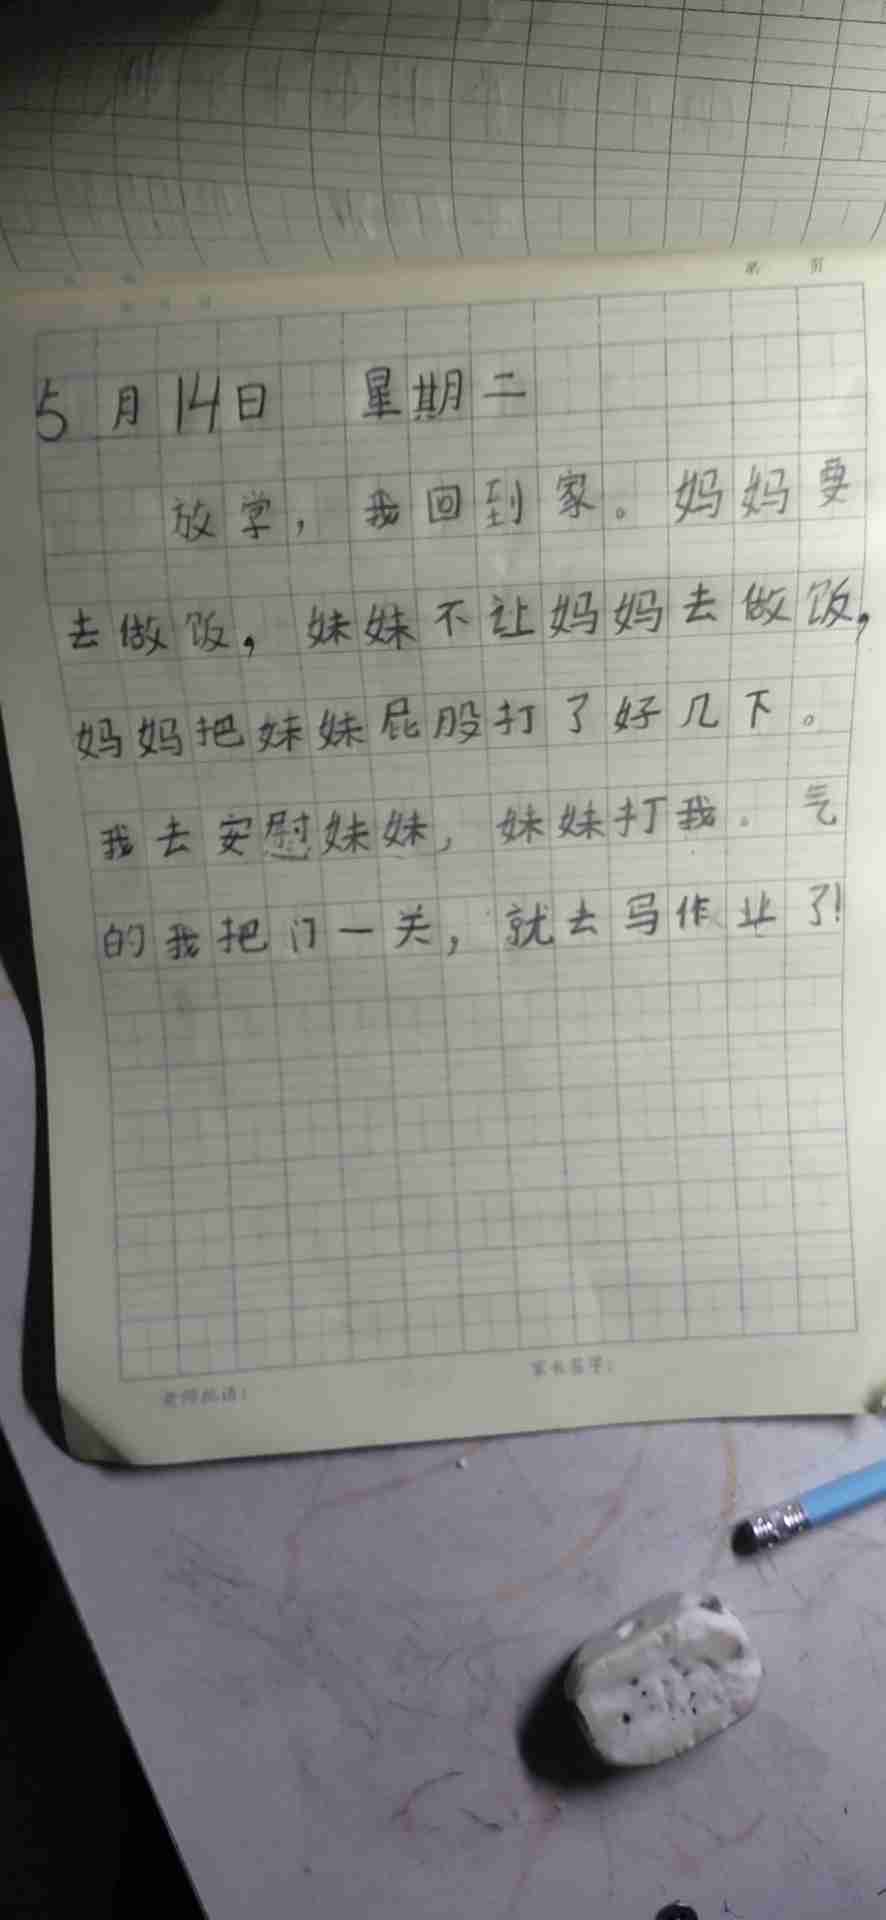 5月14日 星期二
放学，我回到家。妈妈要
去做饭，妹妹不让妈妈去做饭，
妈妈把妹妹屁股打了好几下。
我去安慰妹妹，妹妹打我。气
的我把门一关，就去写作业了！
老师批语：
家长签字：